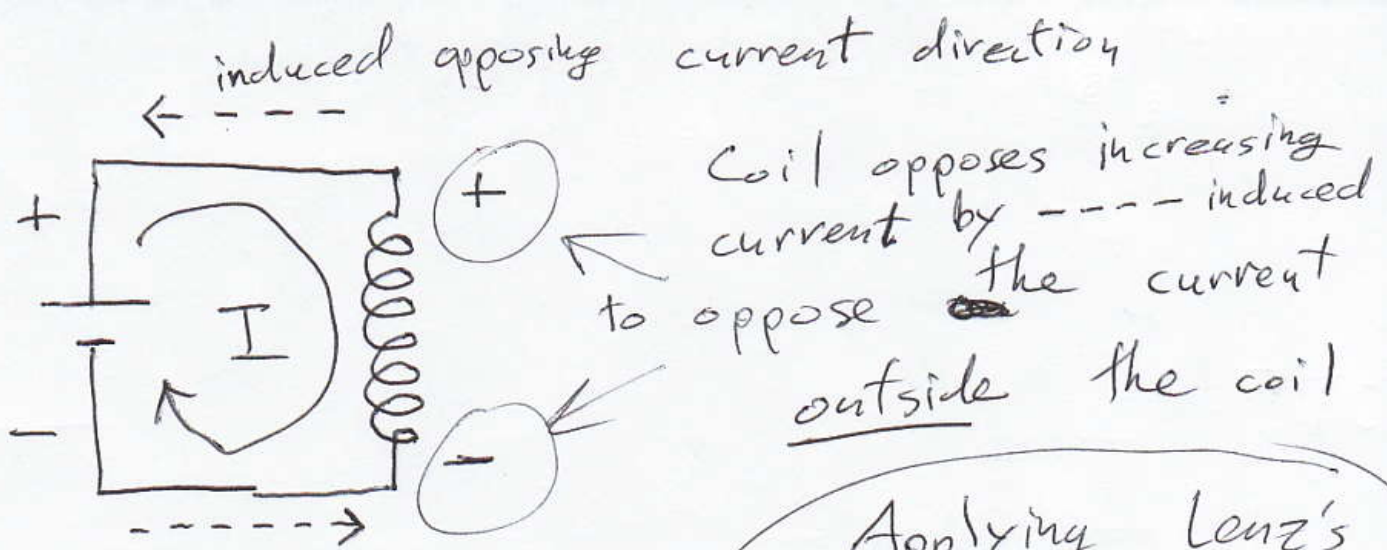 induced opposing current direction
Coil opposes increasing
current by ---- induced
to oppose the current
outside the coil
+
+
I
-
-
Applying Lenz's